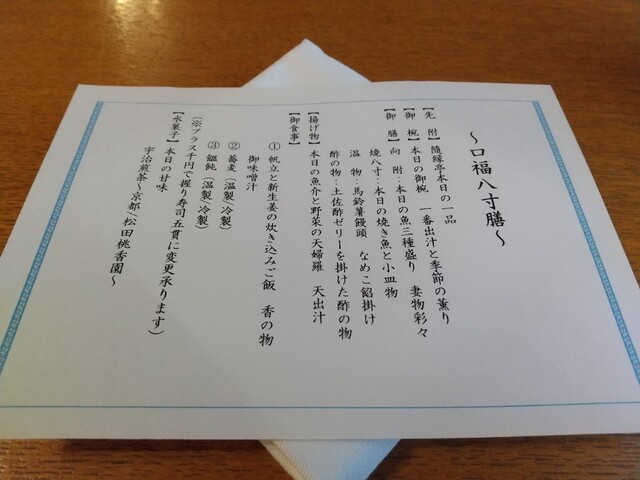 ～口福八寸膳～
【先　附】随縁亭本日の一品
【御　椀】本日の御椀　一番出汁と季節の薫り
【御　膳】向　附：本日の魚三種盛り　妻物彩々
焼八寸：本日の焼き魚と小皿物
温　物：馬鈴薯饅頭　なめこ餡掛け
酢の物：土佐酢ゼリーを掛けた酢の物
【揚げ物】本日の魚介と野菜の天婦羅　天出汁
【御食事】
① 帆立と新生姜の炊き込みご飯　香の物
御味噌汁
② 蕎麦（温製/冷製）
③ 饂飩（温製/冷製）
（※プラス千円で握り寿司五貫に変更承ります）
【水菓子】本日の甘味
宇治煎茶～京都/松田桃香園～